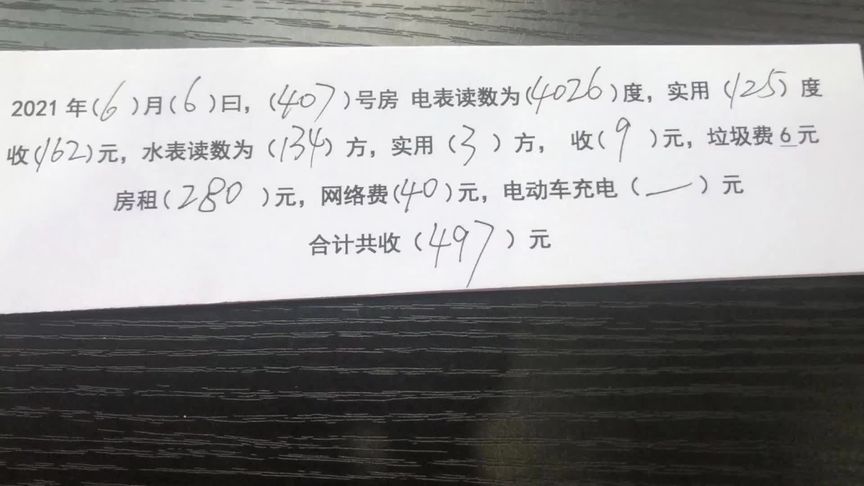 2021年(6)月(6)日，(407)号房 电表读数为(4026)度，实用（125）度
收(162)元，水表读数为（134）方，实用（3）方， 收(9)元，垃圾费6元
房租(280)元，网络费(40)元，电动车充电（—）元
合计共收（497）元